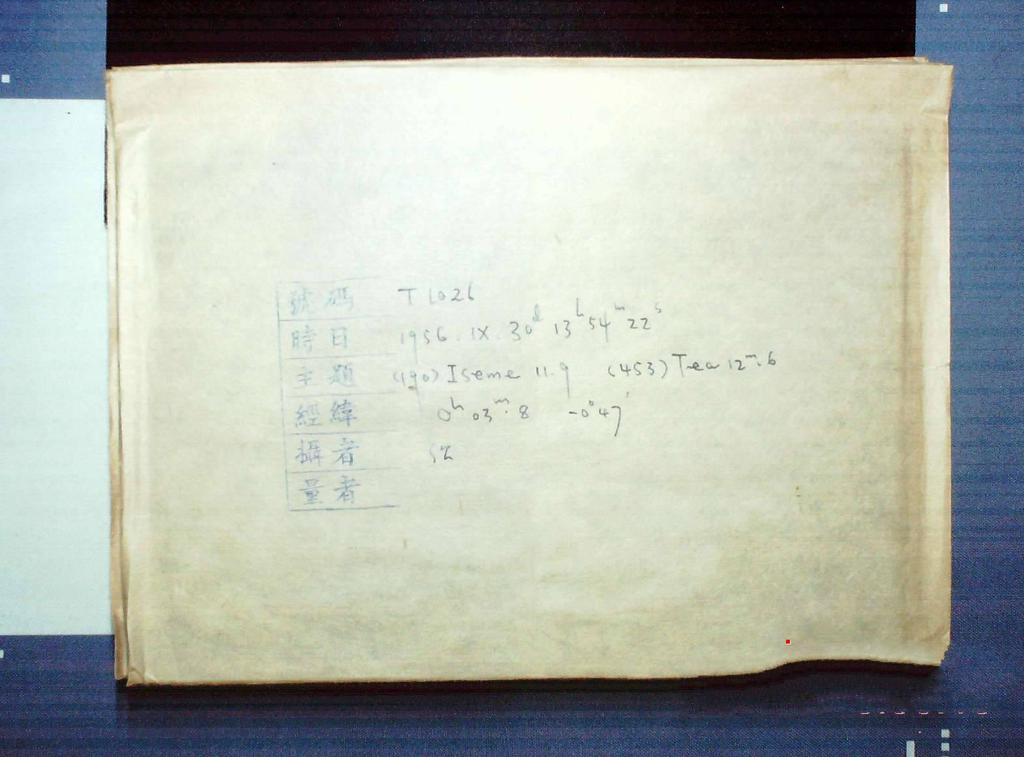 號碼 T1026
時日 1956.IX.30d 13h54m22s
主題 (190) Iseme 11.9 (453) Tea 12m.6
經緯 0h03m.8 -0°47'
攝者
量者